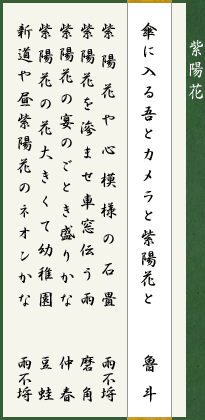 紫陽花
傘に入る吾とカメラと紫陽花と 魯斗
紫陽花や心模様の石畳 雨不埒
紫陽花を滲ませ車窓伝う雨 磨角
紫陽花の宴のごとき盛りかな 仲春
紫陽花の花大きくて幼稚園 豆蛙
新道や昼紫陽花のネオンかな 雨不埒